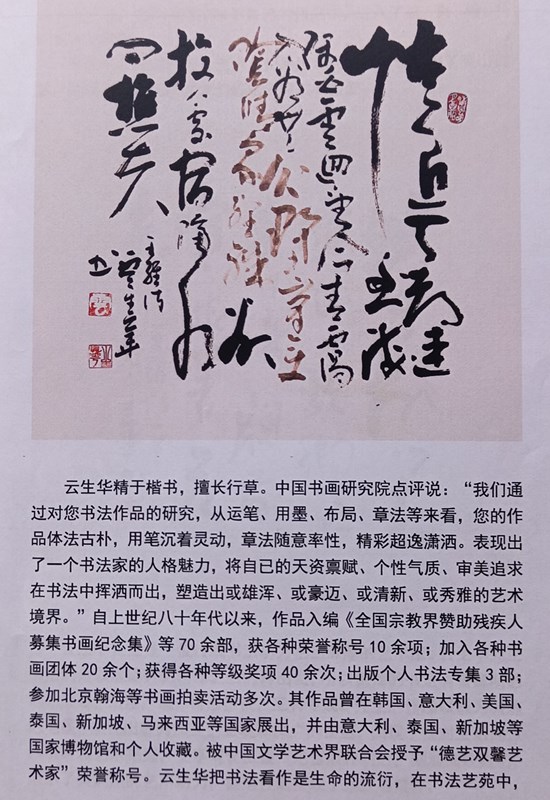 隅白雲迴望合青靄
入看無分野中峰變
陰晴眾壑殊欲
投人處宿隔水
問樵夫
王維詩
雲生華
书
云生华精于楷书，擅长行草。中国书画研究院点评说：“我们通
过对您书法作品的研究，从运笔、用墨、布局、章法等来看，您的作
品体法古朴，用笔沉着灵动，章法随意率性，精彩超逸潇洒。表现出
了一个书法家的人格魅力，将自已的天资禀赋、个性气质、审美追求
在书法中挥洒而出，塑造出或雄浑、或豪迈、或清新、或秀雅的艺术
境界。”自上世纪八十年代以来，作品入编《全国宗教界赞助残疾人
募集书画纪念集》等 70 余部，获各种荣誉称号 10 余项；加入各种书
画团体 20 余个；获得各种等级奖项 40 余次；出版个人书法专集 3 部；
参加北京翰海等书画拍卖活动多次。其作品曾在韩国、意大利、美国、
泰国、新加坡、马来西亚等国家展出，并由意大利、泰国、新加坡等
国家博物馆和个人收藏。被中国文学艺术界联合会授予“德艺双馨艺
术家”荣誉称号。云生华把书法看作是生命的流衍，在书法艺苑中，